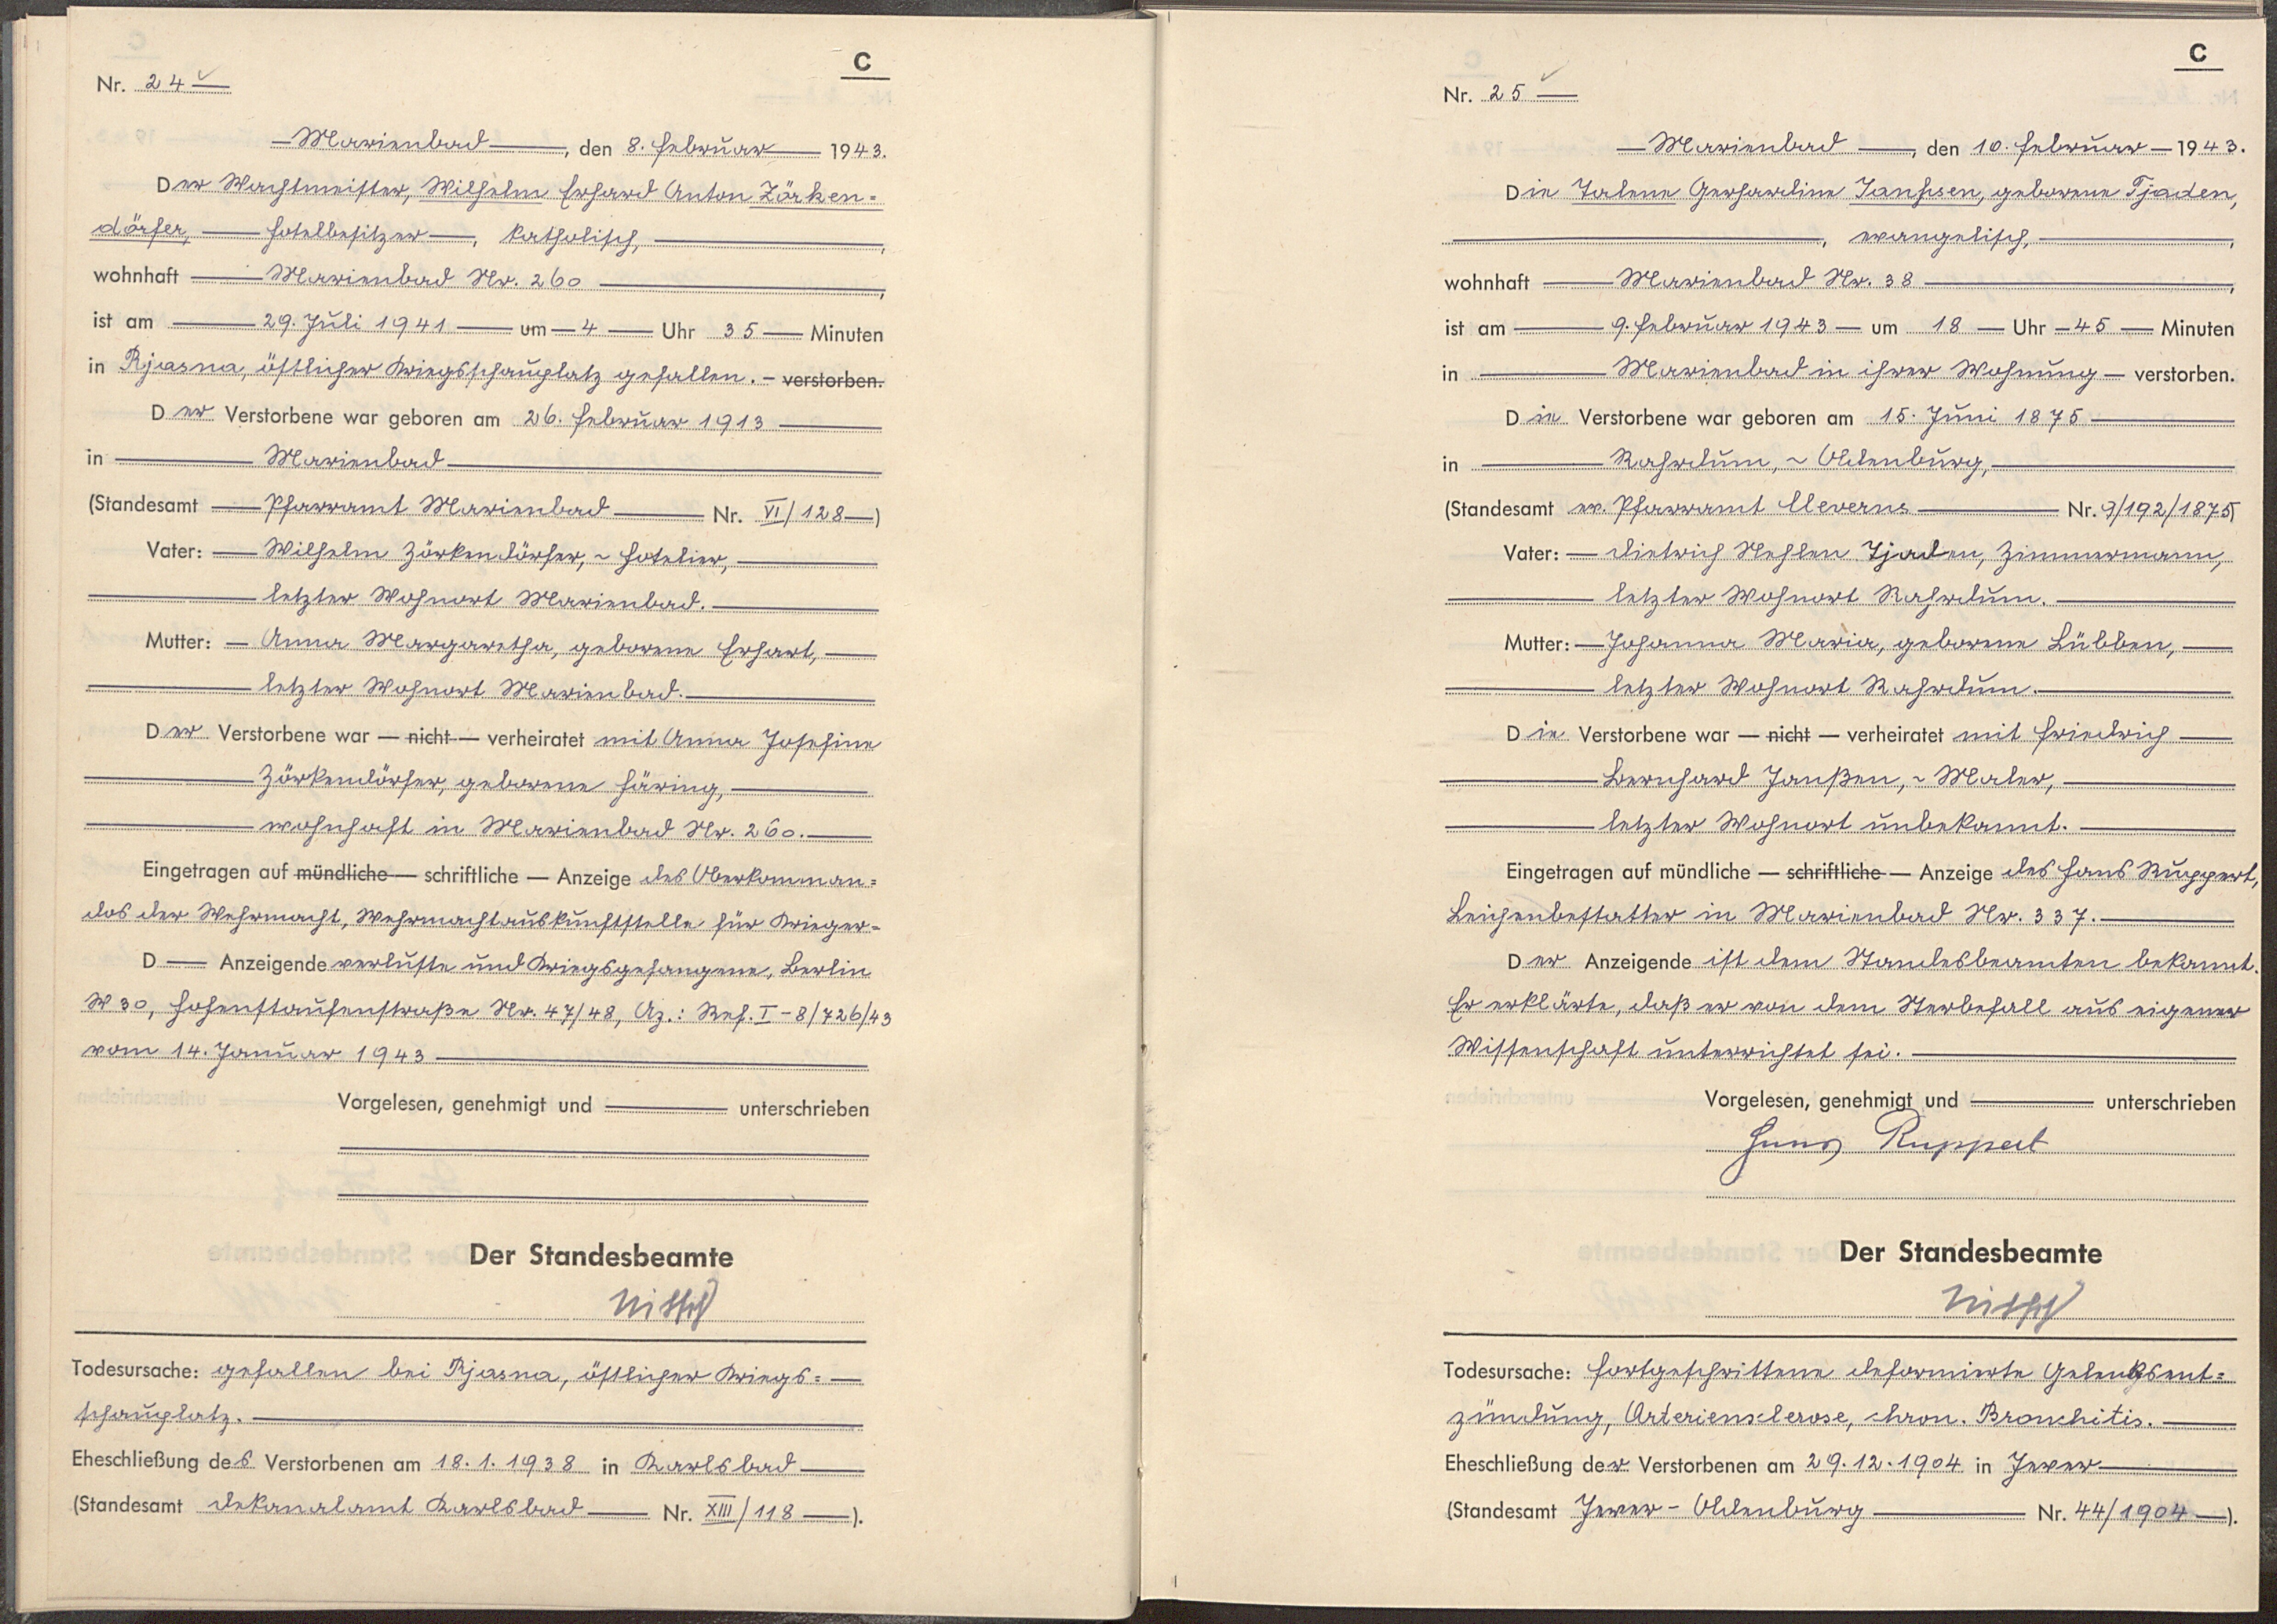 C
Nr. 24 —
— Marienbad —, den 8. Februar — 1943.
Der Wachtmeister, Wilhelm Erhard Anton Zörken=
dörfer, — Hotelbesitzer —, katholisch, —,
wohnhaft — Marienbad Nr. 260 —,
ist am — 29. Juli 1941 — um — 4 — Uhr 35 — Minuten
in Rjasna, östlicher Kriegsschauplatz gefallen. — verstorben.
Der Verstorbene war geboren am 26. Februar 1913 —
in — Marienbad —
(Standesamt — Pfarramt Marienbad — Nr. VI/128 —)
Vater: — Wilhelm Zörkendörfer, ~ Hotelier, —
— letzter Wohnort Marienbad. —
Mutter: — Anna Margaretha, geborene Erhart, —
— letzter Wohnort Marienbad. —
Der Verstorbene war — nicht — verheiratet mit Anna Josefine
— Zörkendörfer, geborene Häring, —
— wohnhaft in Marienbad Nr. 260. —
Eingetragen auf mündliche — schriftliche — Anzeige des Oberkomman=
dos der Wehrmacht, Wehrmachtauskunftstelle für Krieger=
D — Anzeigende verluste und Kriegsgefangene, Berlin
W 30, Hohenstaufenstraße Nr. 47/48, Az.: Ref. I - 8/726/43
vom 14. Januar 1943 —
Vorgelesen, genehmigt und — unterschrieben
Der Standesbeamte
Nitsch
Todesursache: gefallen bei Rjasna, östlicher Kriegs= —
schauplatz. —
Eheschließung des Verstorbenen am 18. 1. 1938 in Karlsbad —
(Standesamt Dekanalamt Karlsbad — Nr. XIII/118 —).
C
Nr. 25 —
— Marienbad —, den 10. Februar — 1943.
Die Talene Gerhardine Janhsen, geborene Tjaden,
—, evangelisch, —,
wohnhaft — Marienbad Nr. 38 —,
ist am — 9. Februar 1943 — um 18 — Uhr — 45 — Minuten
in — Marienbad in ihrer Wohnung — verstorben.
Die Verstorbene war geboren am 15. Juni 1875 —
in — Rahrdum, ~ Oldenburg, —
(Standesamt ev. Pfarramt Cleverns — Nr. 9/192/1875)
Vater: — Dietrich Nehlen Tjaden, Zimmermann,
— letzter Wohnort Rahrdum. —
Mutter: — Johanna Maria, geborene Lübben, —
— letzter Wohnort Rahrdum. —
Die Verstorbene war — nicht — verheiratet mit Friedrich —
— Bernhard Janßen, ~ Maler, —
— letzter Wohnort unbekannt. —
Eingetragen auf mündliche — schriftliche — Anzeige des Hans Ruppert,
Leichenbestatter in Marienbad Nr. 337. —
Der Anzeigende ist dem Standesbeamten bekannt.
Er erklärte, daß er von dem Sterbefall aus eigener
Wissenschaft unterrichtet sei. —
Vorgelesen, genehmigt und — unterschrieben
Hans Ruppert
Der Standesbeamte
Nitsch
Todesursache: Fortgeschrittene deformierte Gelenksent=
zündung, Arteriensclerose, chron. Bronchitis. —
Eheschließung der Verstorbenen am 29. 12. 1904 in Jever —
(Standesamt Jever - Oldenburg — Nr. 44/1904 —).